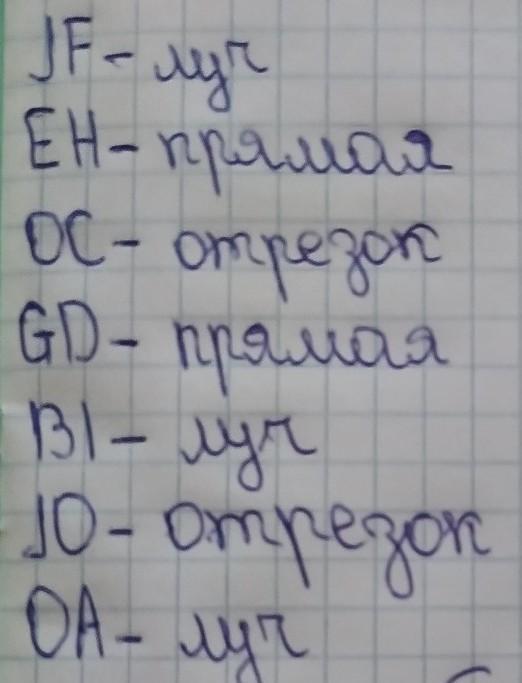 JF - луч
EH - прямая
OC - отрезок
GD - прямая
BI - луч
JO - отрезок
OA - луч